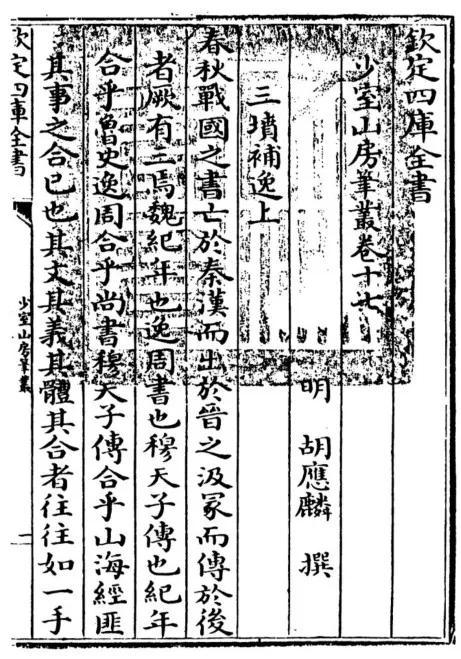 欽定四庫全書
少室山房筆叢卷十七
明 胡應麟 撰
三墳補逸上
春秋戰國之書亡於秦漢而出於晉之汲冢而傳於後
者厥有三焉魏紀年也逸周書也穆天子傳也紀年
合乎魯史逸周合乎尚書穆天子傳合乎山海經匪
其事之合已也其文其義其體其合者往往如一手
欽定四庫全書
少室山房筆叢
一